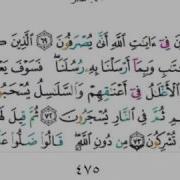 نَ فِىٓ ءَايَٰتِ ٱللَّهِ أَنَّىٰ يُصْرَفُونَ ٦٩ ٱلَّذِينَ كَ
تَٰبِ وَبِمَآ أَرْسَلْنَا بِهِۦ رُسُلَنَا فَسَوْفَ يَعْ
ٱلْأَغْلَٰلُ فِىٓ أَعْنَٰقِهِمْ وَٱلسَّلَٰسِلُ يُسْحَبُو
مِ ثُمَّ فِى ٱلنَّارِ يُسْجَرُونَ ٧٢ ثُمَّ قِيلَ لَهُ
تُشْرِكُونَ ٧٣ مِن دُونِ ٱللَّهِ قَالُوا۟ ضَلُّوا۟ عَ
٤٧٥